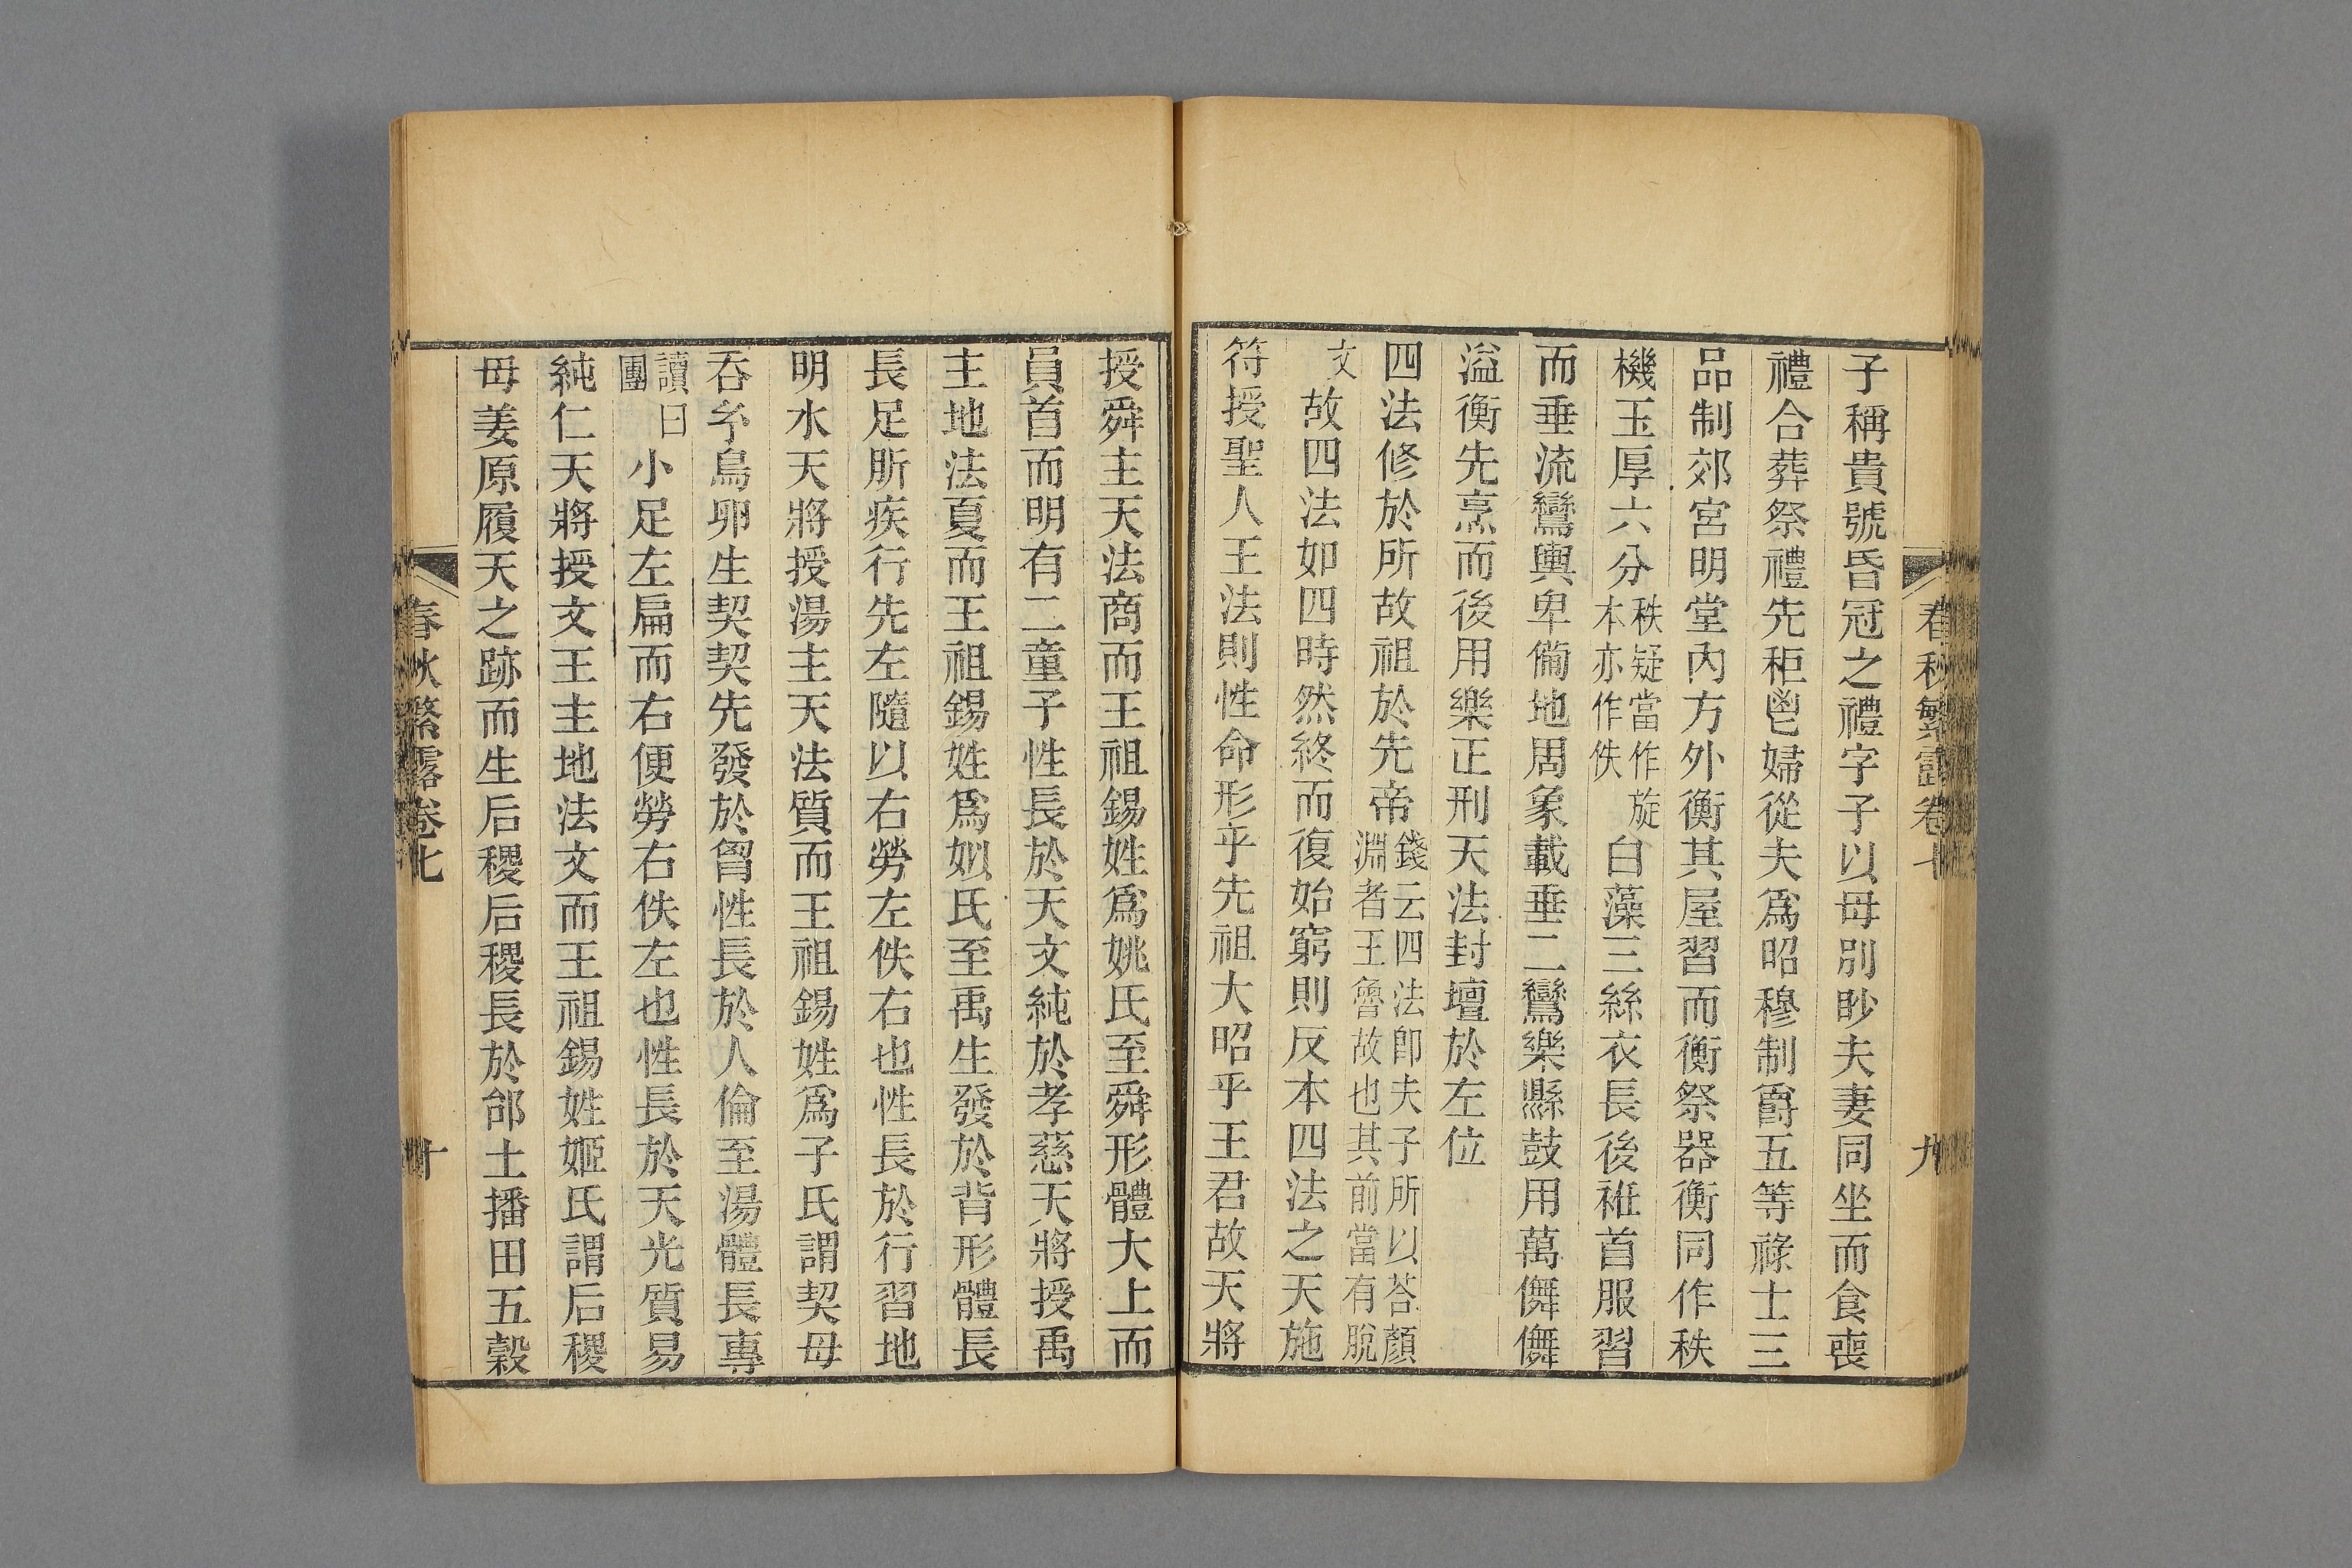 春秋繁露卷七 九
子稱貴號昏冠之禮字子以母別眇夫妻同坐而食喪
禮合葬祭禮先秬鬯婦從夫爲昭穆制爵五等祿士三
品制郊宮明堂內方外衡其屋習而衡祭器衡同作秩
機玉厚六分秩疑當作旋本亦作佚白藻三絲衣長後袵首服習
而垂流鸞輿卑備地周象載垂二鸞樂縣鼓用萬儛儛
溢衡先烹而後用樂正刑天法封壇於左位
四法修於所故祖於先帝錢云四法卽夫子所以荅顏淵者王魯故也其前當有脫
文故四法如四時然終而復始窮則反本四法之天施
符授聖人王法則性命形乎先祖大昭乎王君故天將
授舜主天法商而王祖錫姓爲姚氏至舜形體大上而
員首而明有二童子性長於天文純於孝慈天將授禹
主地法夏而王祖錫姓爲姒氏至禹生發於背形體長
長足肵疾行先左隨以右勞左佚右也性長於行習地
明水天將授湯主天法質而王祖錫姓爲子氏謂契母
吞𤣥鳥卵生契契先發於胷性長於人倫至湯體長專
讀曰團小足左扁而右便勞右佚左也性長於天光質易
純仁天將授文王主地法文而王祖錫姓姬氏謂后稷
母姜原履天之跡而生后稷后稷長於邰土播田五穀
春秋繁露卷七 十